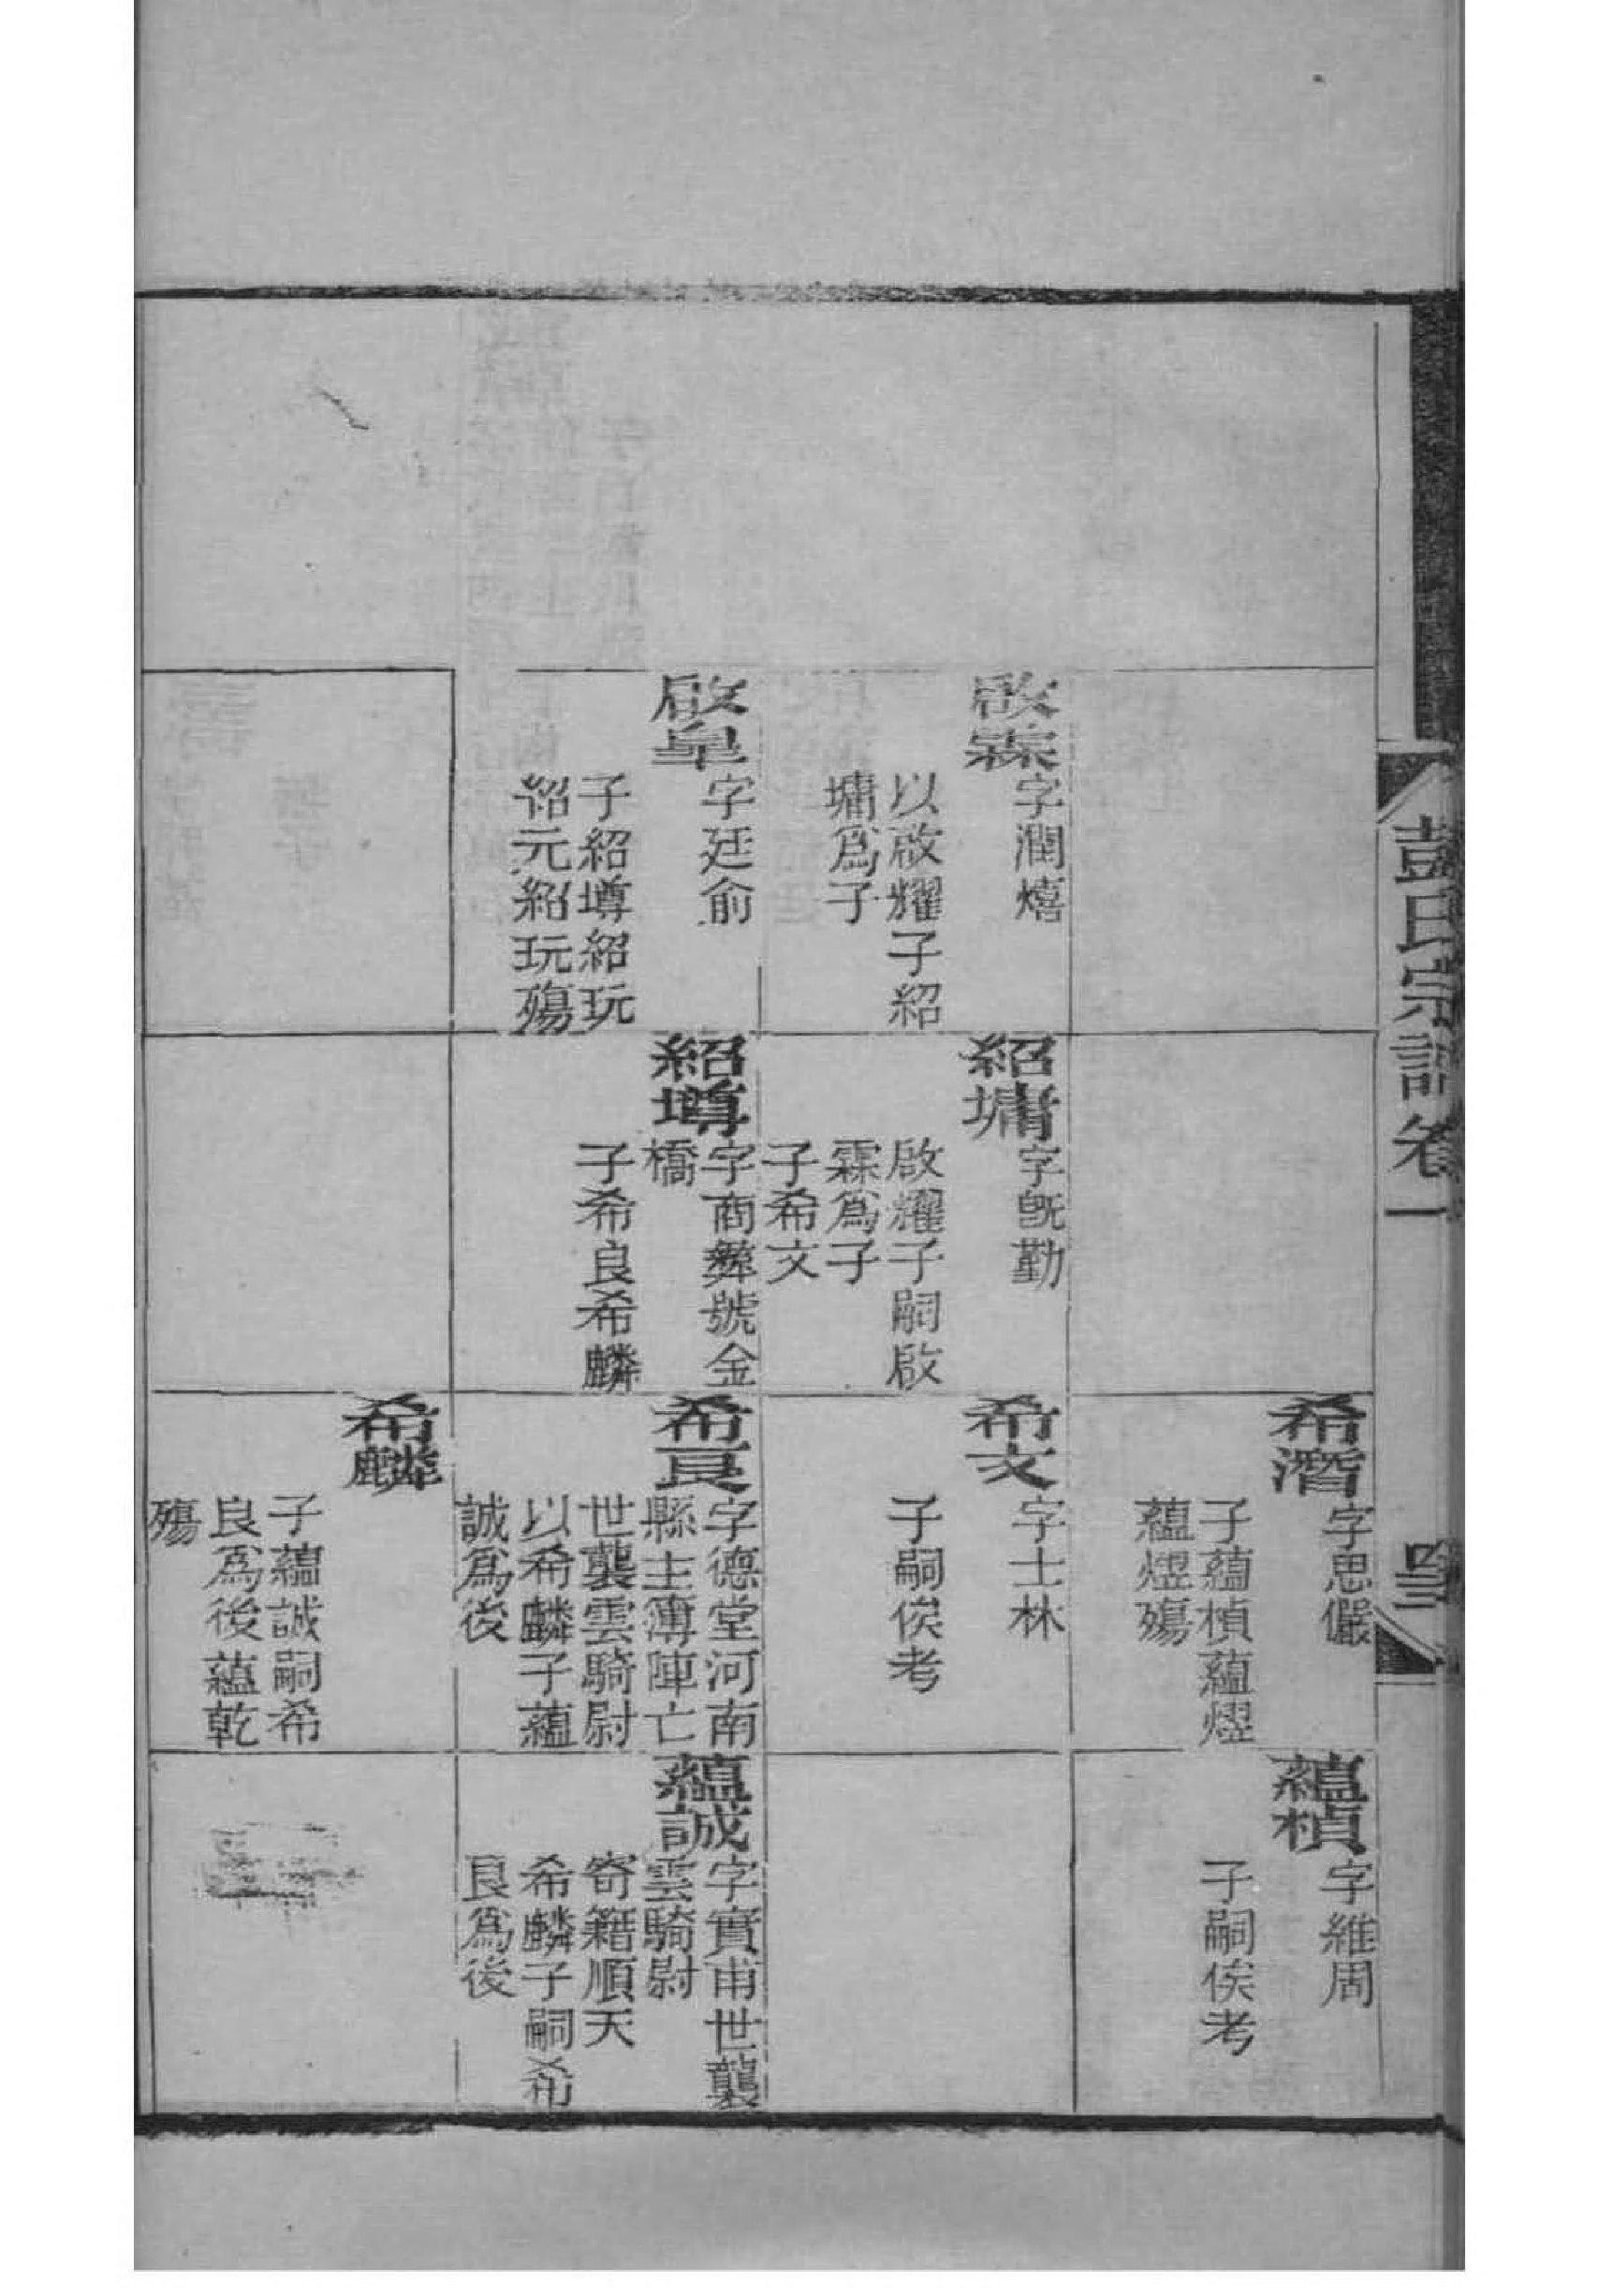 彭氏宗譜卷一
啟霖
字潤熺
以啟耀子紹
墉爲子
啟阜
字廷俞
子紹墫紹玩
紹元紹玩殤
紹墉
字旣勤
啟耀子嗣啟
霖爲子
子希文
紹墫
字商彝號金
橋
子希良希麟
希濳
字思儼
子蘊楨蘊熤
蘊熤殤
希文
字士林
子嗣俟考
希良
字德堂河南
縣主簿陣亡
世襲雲騎尉
以希麟子蘊
誠爲後
希麟
子蘊誠嗣希
良爲後蘊乾
殤
蘊楨
字維周
子嗣俟考
蘊誠
字實甫世襲
雲騎尉
寄籍順天
希麟子嗣希
良爲後